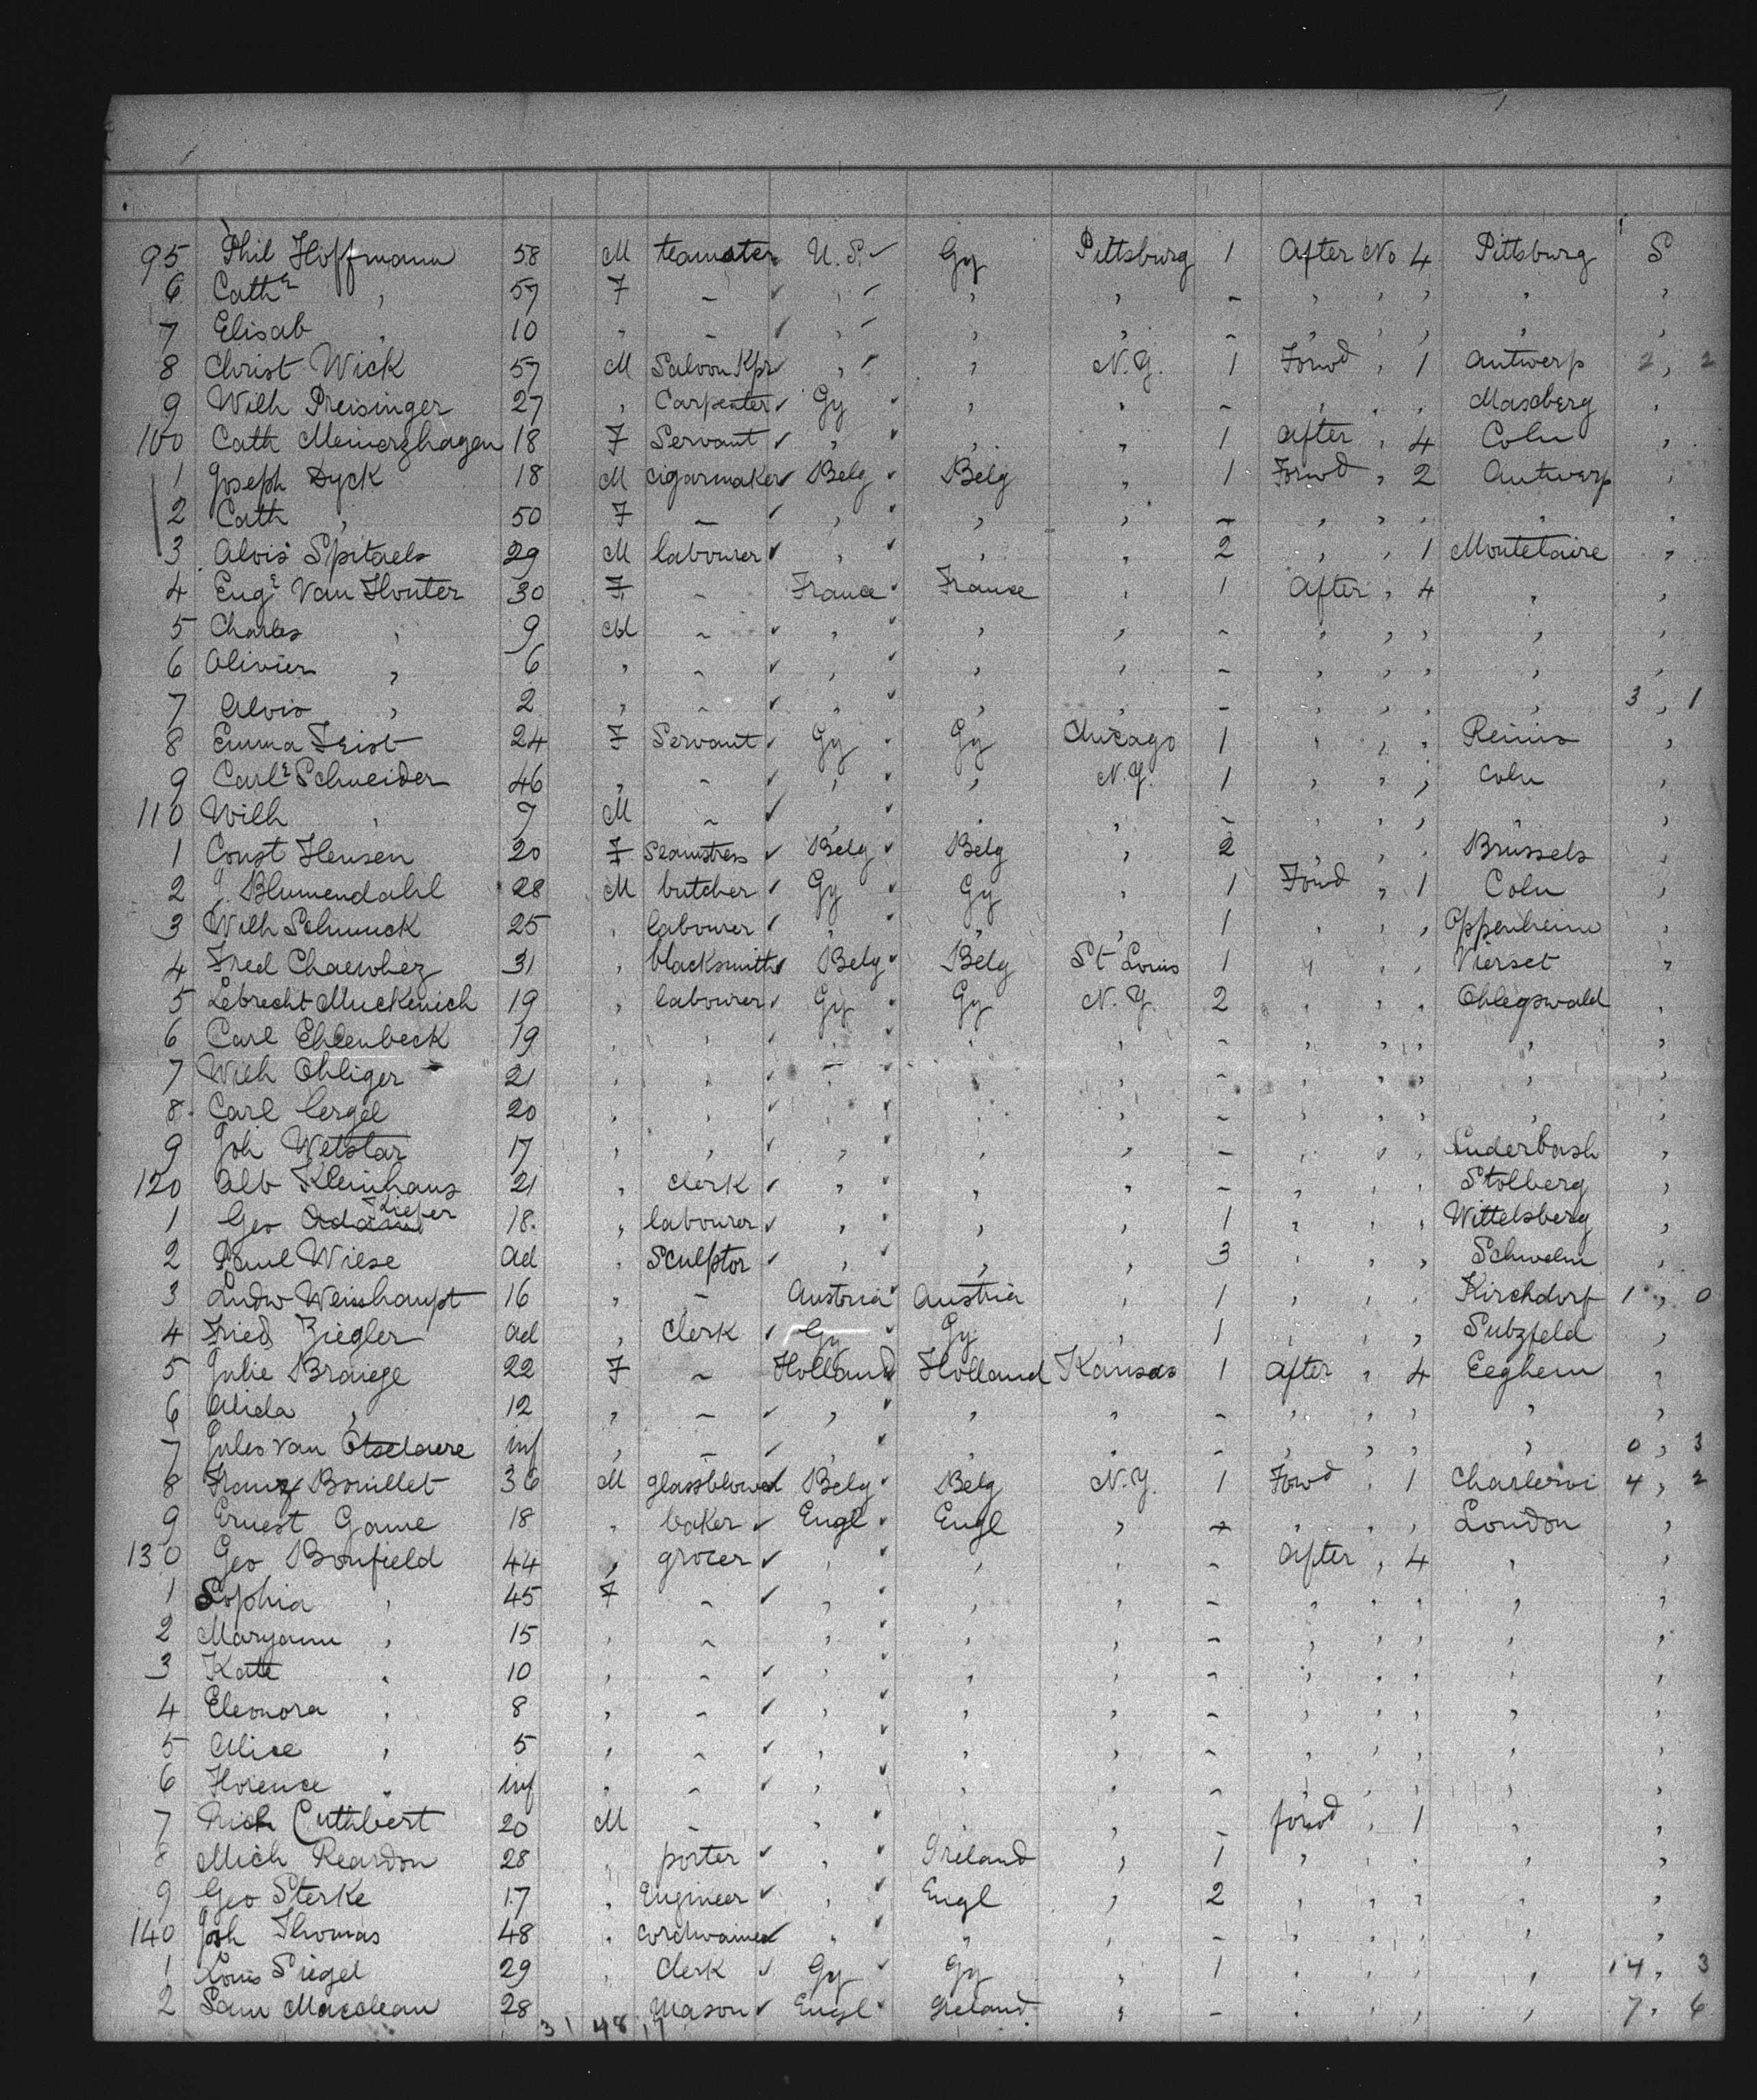 95 Phil Hoffmann 58 M teamster U.S. Gy Pittsburg 1 After No 4 Pittsburg S
6 Cathe , 57 F - , , , - , , , , ,
7 Elisab , 10 , - , , , - , , , , ,
8 Christ Wick 57 M Saloon Kpr , , N.Y. 1 Forwd , 1 Antwerp 2, 2
9 Wilh Preisinger 27 , Carpenter Gy , , - , , , Maxberg ,
100 Cath Meinerzhagen 18 F Servant , , , 1 After , 4 Coln ,
1 Joseph Dyck 18 M cigarmaker Belg Belg , 1 Forwd , 2 Antwerp ,
2 Cath , 50 F - , , , - , , , , ,
3 Alois Spitaels 29 M labourer , , , 2 , , 1 Montetaire ,
4 Enge Van Houter 30 F - France France , 1 After , 4 , ,
5 Charles , 9 M - , , , - , , , , ,
6 Olivier , 6 , - , , , - , , , , ,
7 Alois , 2 , - , , , - , , , , 3, 1
8 Emma Feist 24 F Servant Gy Gy Chicago 1 , , , Reims ,
9 Carle Schneider 46 , - , , N.Y. 1 , , , Coln ,
110 Wilh , 7 M - , , , - , , , , ,
1 Const Hensen 20 F Seamstress Belg Belg , 2 , , , Brussels ,
2 J. Blumendahl 28 M butcher Gy Gy , 1 Forwd , 1 Coln ,
3 Wilh Schmuck 25 , labourer , , , 1 , , , Oppenheim ,
4 Fred Chaewhez 31 , blacksmith Belg Belg St Louis 1 , , , Vierset ,
5 Lebrecht Muckenich 19 , labourer Gy Gy N.Y. 2 , , , Ohlegswald ,
6 Carl Ehlenbeck 19 , , , , , - , , , , ,
7 Wilh Ohliger 21 , , , , , - , , , , ,
8 Carl Cergel 20 , , , , , - , , , , ,
9 Joh Wetslar 17 , , , , , - , , , Luderbash ,
120 Alb Kleinhaus 21 , clerk , , , - , , , Stolberg ,
1 Geo Adams Kieper 18 , labourer , , , 1 , , , Wittelsberg ,
2 Paul Wiese ad , Sculptor , , , 3 , , , Schwelm ,
3 Ludw Weisshaupt 16 , - Austria Austria , 1 , , , Kirchdorf 1, 0
4 Fried Ziegler ad , Clerk Gy Gy , 1 , , , Subzfeld ,
5 Julie Braiege 22 F - Holland Holland Kansas 1 After , 4 Eeghem ,
6 Alida , 12 , - , , , - , , , , ,
7 Jules van Otselaere inf , - , , , - , , , , 0, 3
8 Franz Bouillet 36 M glassblower Belg Belg N.Y. 1 Forwd , 1 Charleroi 4, 2
9 Ernest Game 18 , baker Engl Engl , - , , , London ,
130 Geo Bonfield 44 , grocer , , , - After , 4 , ,
1 Sophia , 45 F - , , , - , , , , ,
2 Maryann , 15 , - , , , - , , , , ,
3 Kate , 10 , - , , , - , , , , ,
4 Eleonora , 8 , - , , , - , , , , ,
5 Alice , 5 , - , , , - , , , , ,
6 Florence , inf , - , , , - , , , , ,
7 Rich Cuthbert 20 M - , , , - forwd , 1 , ,
8 Mich Reardon 28 , porter , Ireland , 1 , , , , ,
9 Geo Sterke 17 , Engineer , Engl , 2 , , , , ,
140 Joh Thomas 48 , cordwainer , , , - , , , , ,
1 Louis Siegel 29 , Clerk Gy Gy , 1 , , , , 14, 3
2 Sam Maclean 28 , Mason Engl Ireland , - , , , , 7, 6
31 48 17